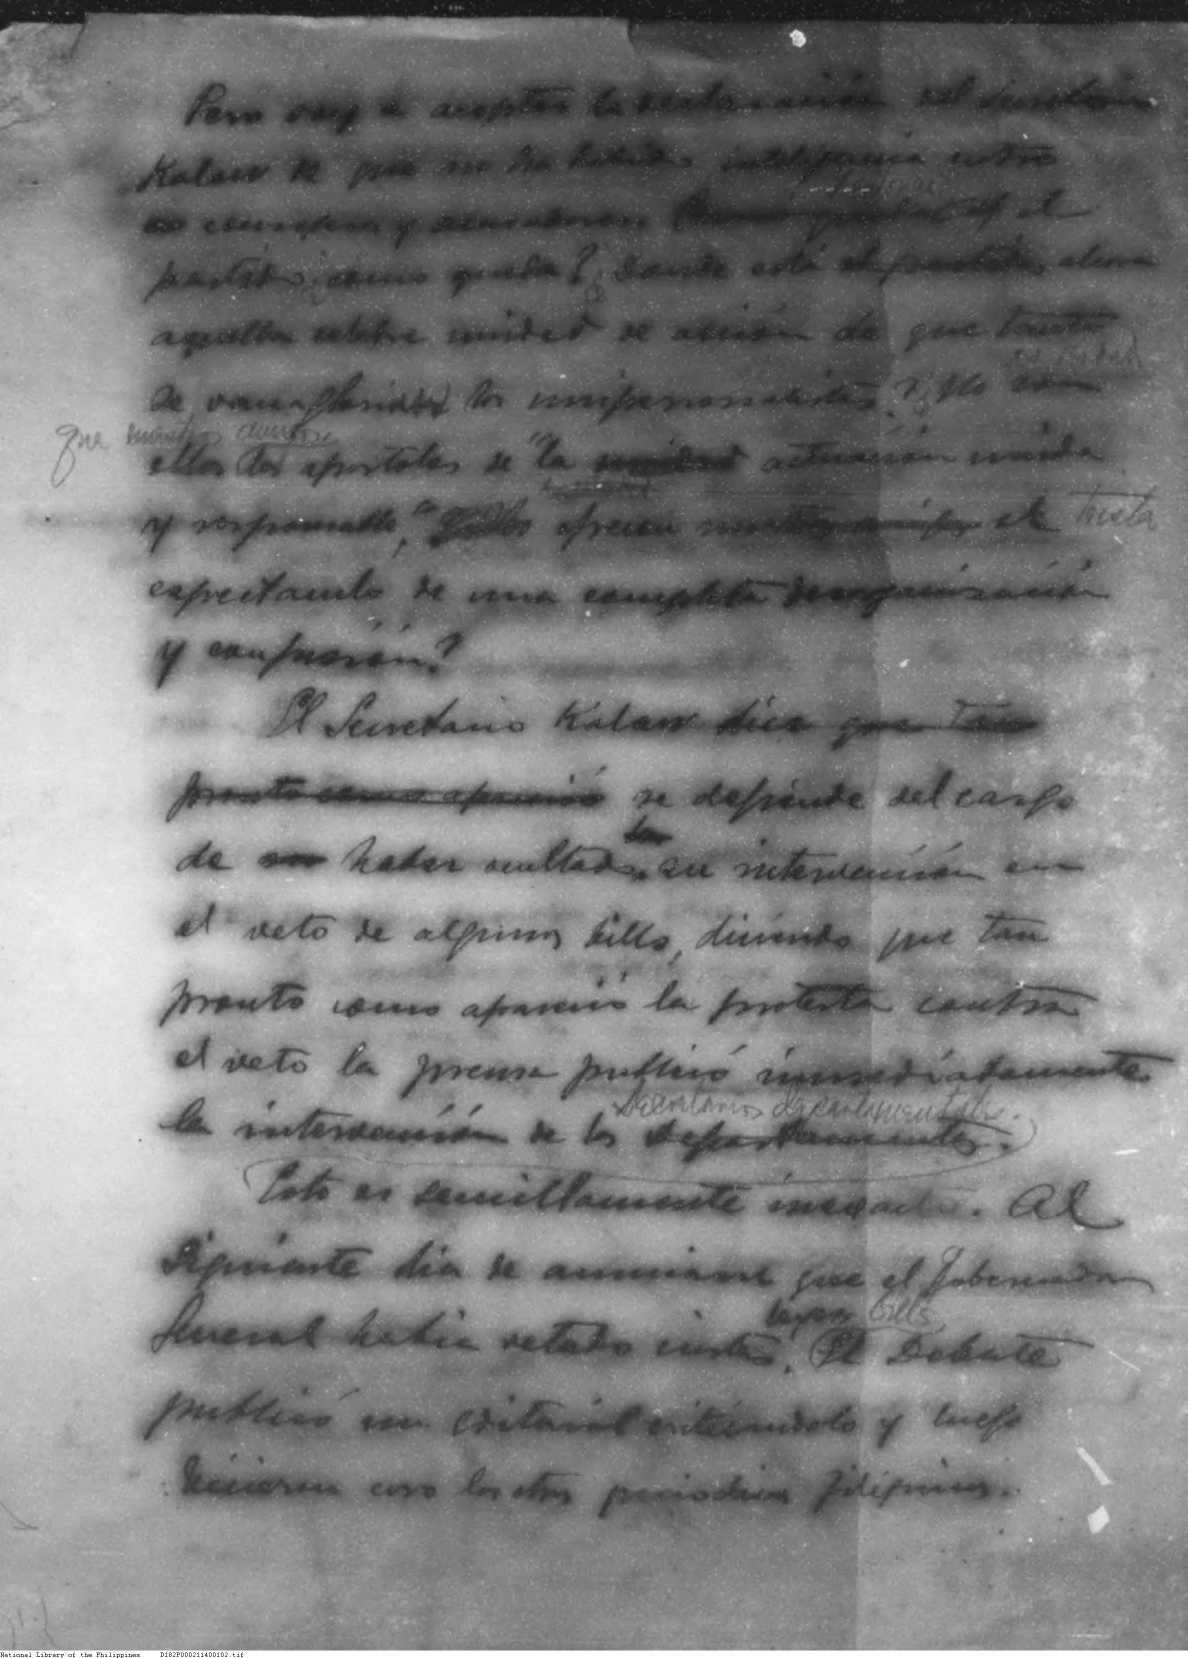 Pero voy a aceptar la declaración del Secretario
Kalaw de que no ha habido inteligencia entre
consejeros y senadores el
partido ¿como queda? ¿Donde está ahora
aquella celebre unidad de acción de que tanto
se vanagloriaban los unipersonalistas? ¿No son
que muertos
ellos los apostoles de "la actuación unida
y responsable," ofrecen el triste
espectaculo de una completa desorganización
y confusión?
El Secretario Kalaw dice que tan
pronto como apareció se defiende del cargo
de haber ocultado su intervención en
el veto de algunos bills, diciendo que tan
pronto como apareció la protesta contra
el veto la prensa publicó inmediatamente
Secretarios departamentales.
la intervención de los Departamentos.
Esto es sencillamente inexacto. Al
siguiente dia de anunciarse que el Gobernador
bills,
General habia vetado ciertos, El Debate
publicó un editorial criticandolo y luego
hicieron coro los otros periodicos filipinos.
National Library of the Philippines D182P000211400102.tif